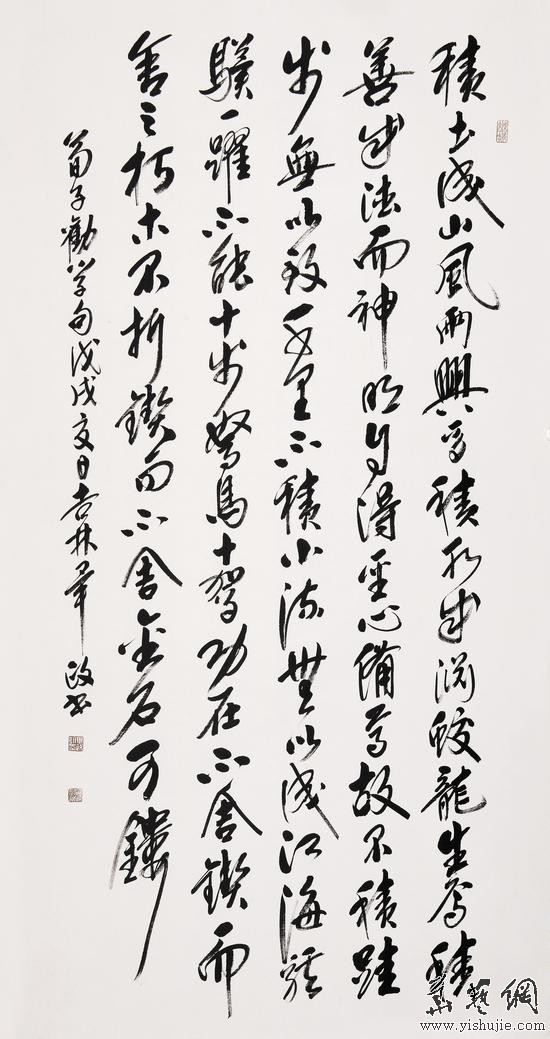 積土成山風雨興焉積水成淵蛟龍生焉積
善成德而神明自得聖心備焉故不積跬
步無以致千里不積小流無以成江海騏
驥一躍不能十步駑馬十駕功在不舍鍥而
舍之朽木不折鍥而不舍金石可鏤
荀子勸學句戊戌夏日吉林畢政書
藝網
www.yishujie.com